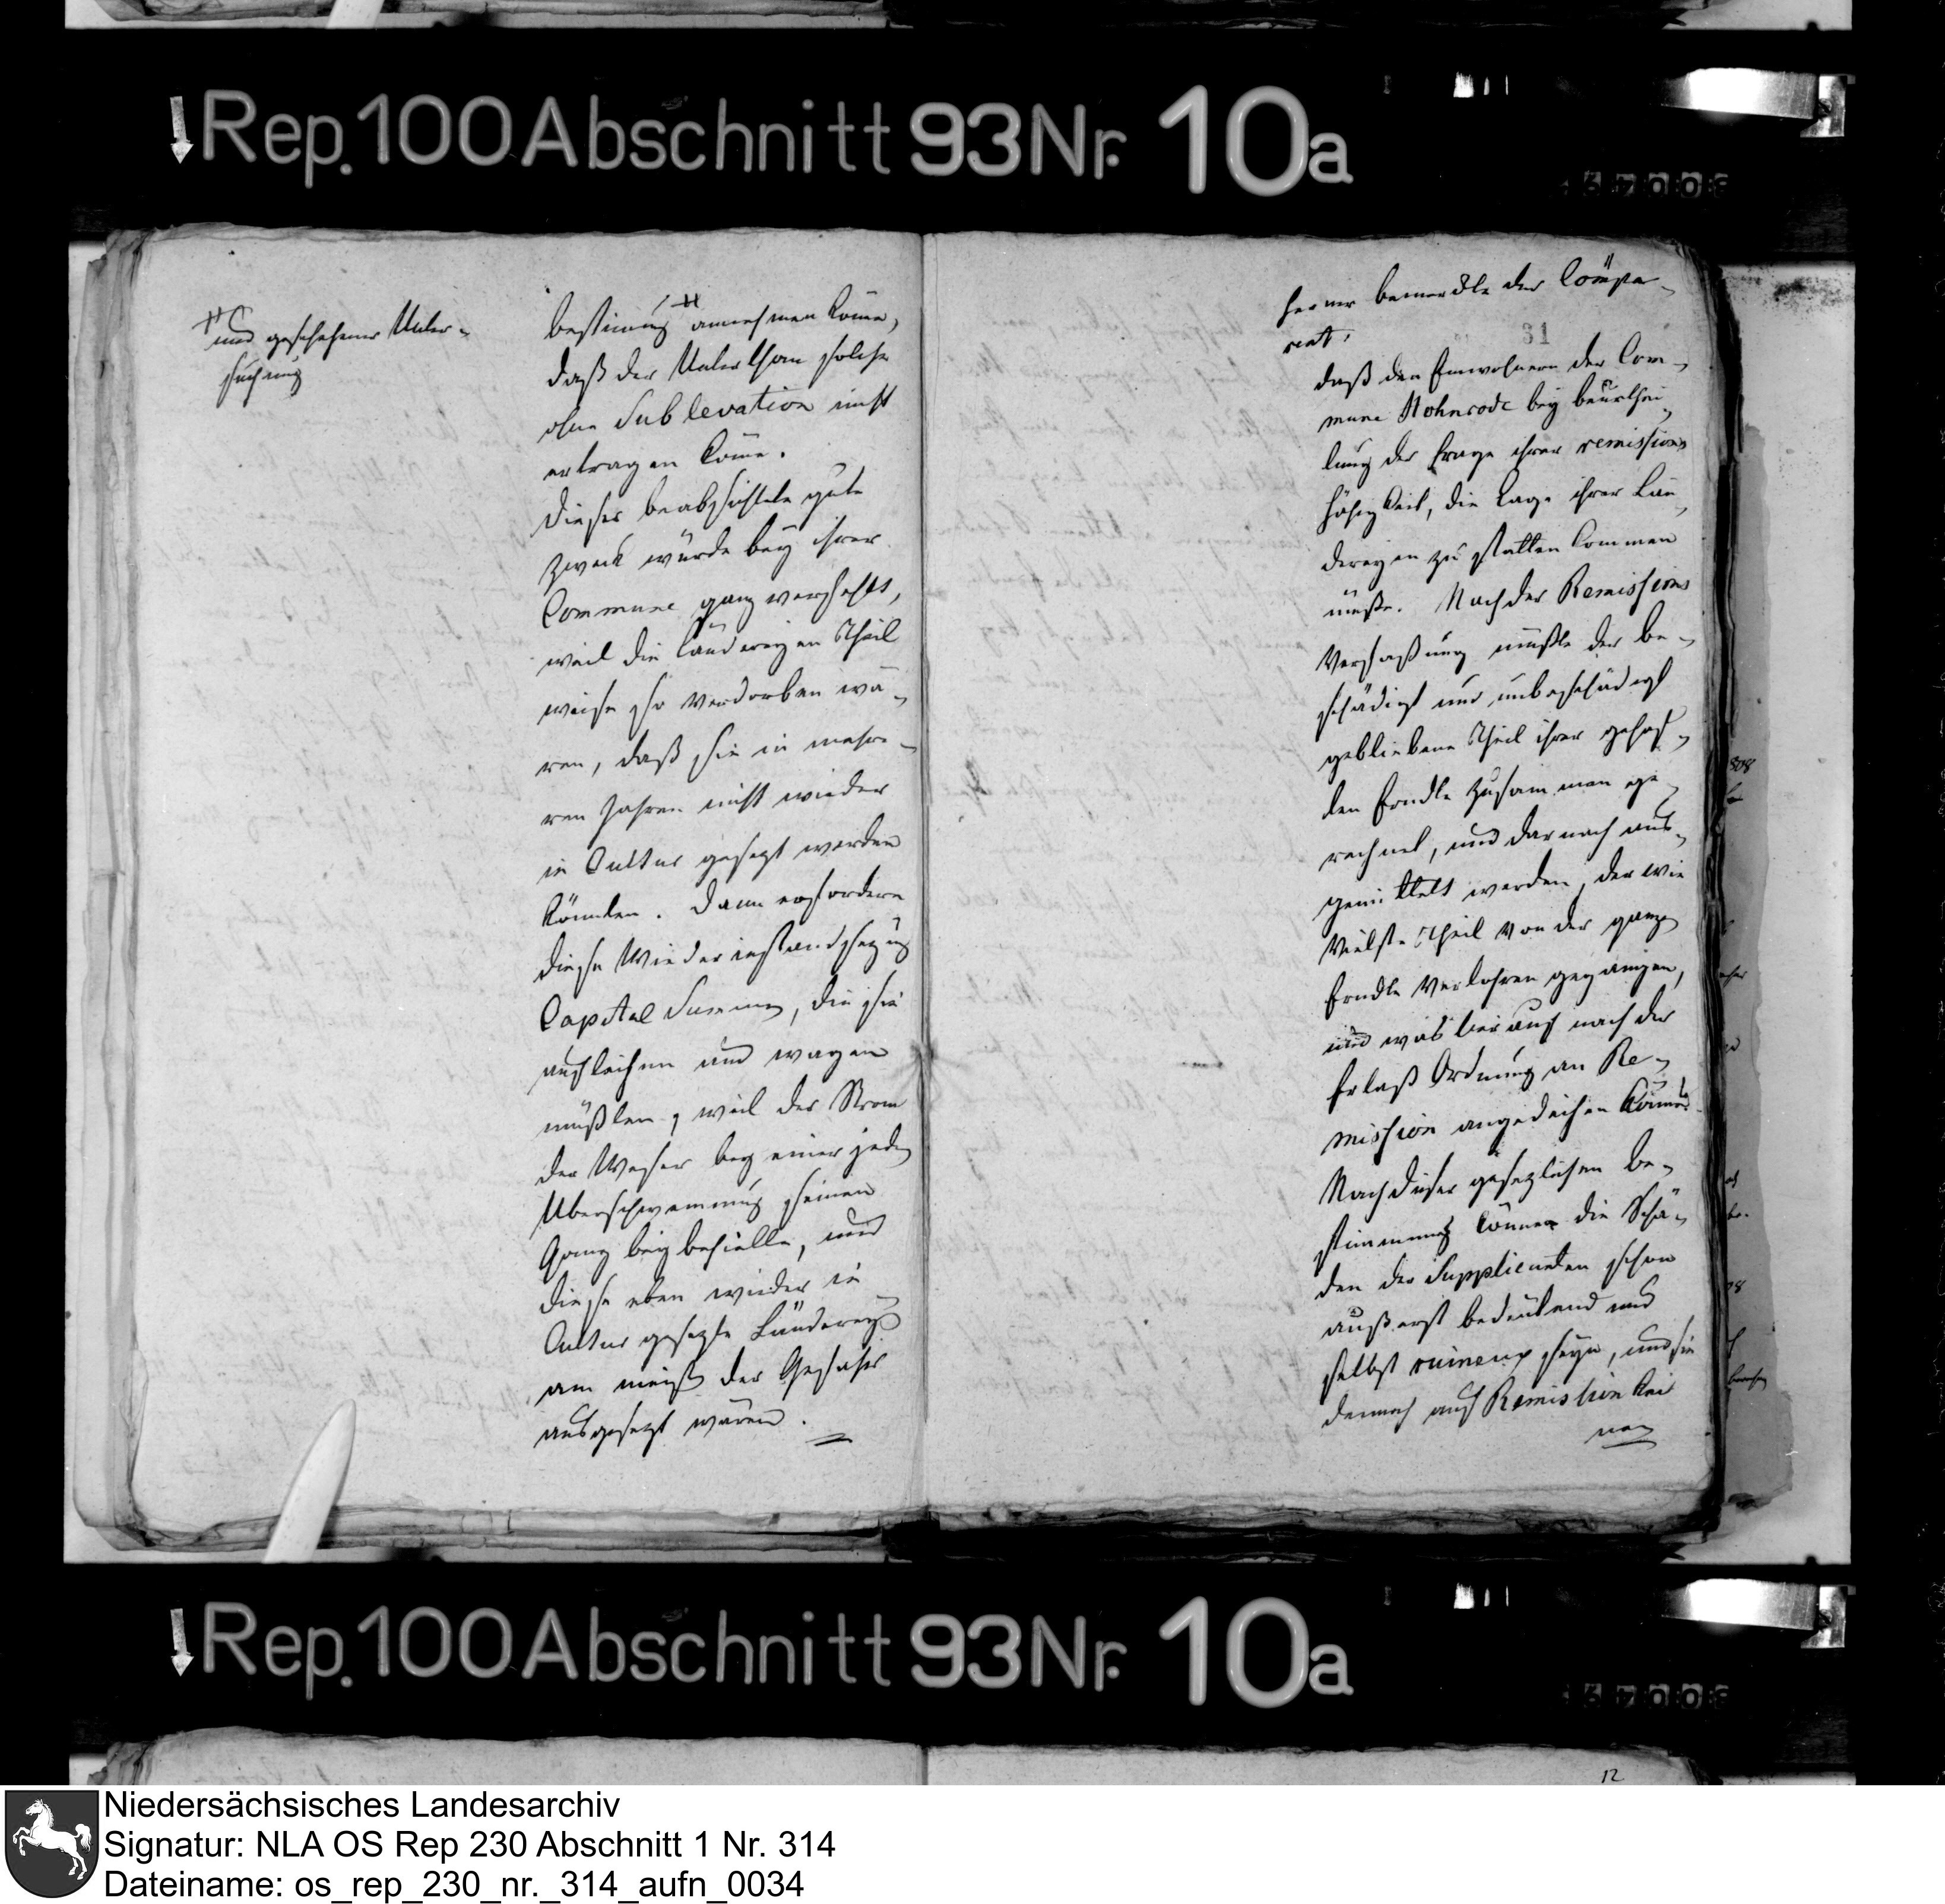 Rep. 100 Abschnitt 93 Nr. 10a
# und geschehener Unter-
suchung
bestimung # annehmen köne,
daß der Unterthan solche
ohne Sublevation nicht
ertragen köne.
Dieser beabsichtete gute
Zweck würde bey ihrer
Commune ganz verfehlt,
weil die Ländereyen Theil
weise so verdorben wä-
ren, daß sie in mehre-
ren Jahren nicht wieder
in Cultur gesezt werden
könnten. Dann erfordere
diese Wiederinstandsezung
Capital Summen, die sie
aufleihen und wagen
müßten, weil der Strom
der Weser bey einer jeden
Überschwemmung seinen
Gang beybehielte, und
diese eben wieder in
Cultur gesezte Länderey
am meist der Gefahr
ausgesezt wären.
31
Ferner bemerckte der Compa-
rent,
daß den Einwohnern der Com-
mune Nohnrode bey beurthei-
lung der Frage ihrer remissions
fähigkeit, die Lage ihrer Län-
dereyen zu statten kommen
müße. Nach der Remissions
Verfaßung müßte der be-
schädigt und unbeschädigt
gebliebene Theil ihrer gehof-
ten Erndte zusammen ge-
rechnet, und darnach aus-
gemittelt werden, der wie
Vielste Theil von der ganzen
Erndte Verlohren gegangen,
und was hierauf nach der
Erlaß Ordnung an Re-
mission angedeihen könne.
Nach dieser gesezlichen Be-
stimmung können die Schä-
den der Supplicanten schon
äußerst bedeutend und
selbst ruineux seyn, und sie
dennoch auf Remission kei
nen
Rep. 100 Abschnitt 93 Nr. 10a
12
Niedersächsisches Landesarchiv
Signatur: NLA OS Rep 230 Abschnitt 1 Nr. 314
Dateiname: os_rep_230_nr._314_aufn_0034